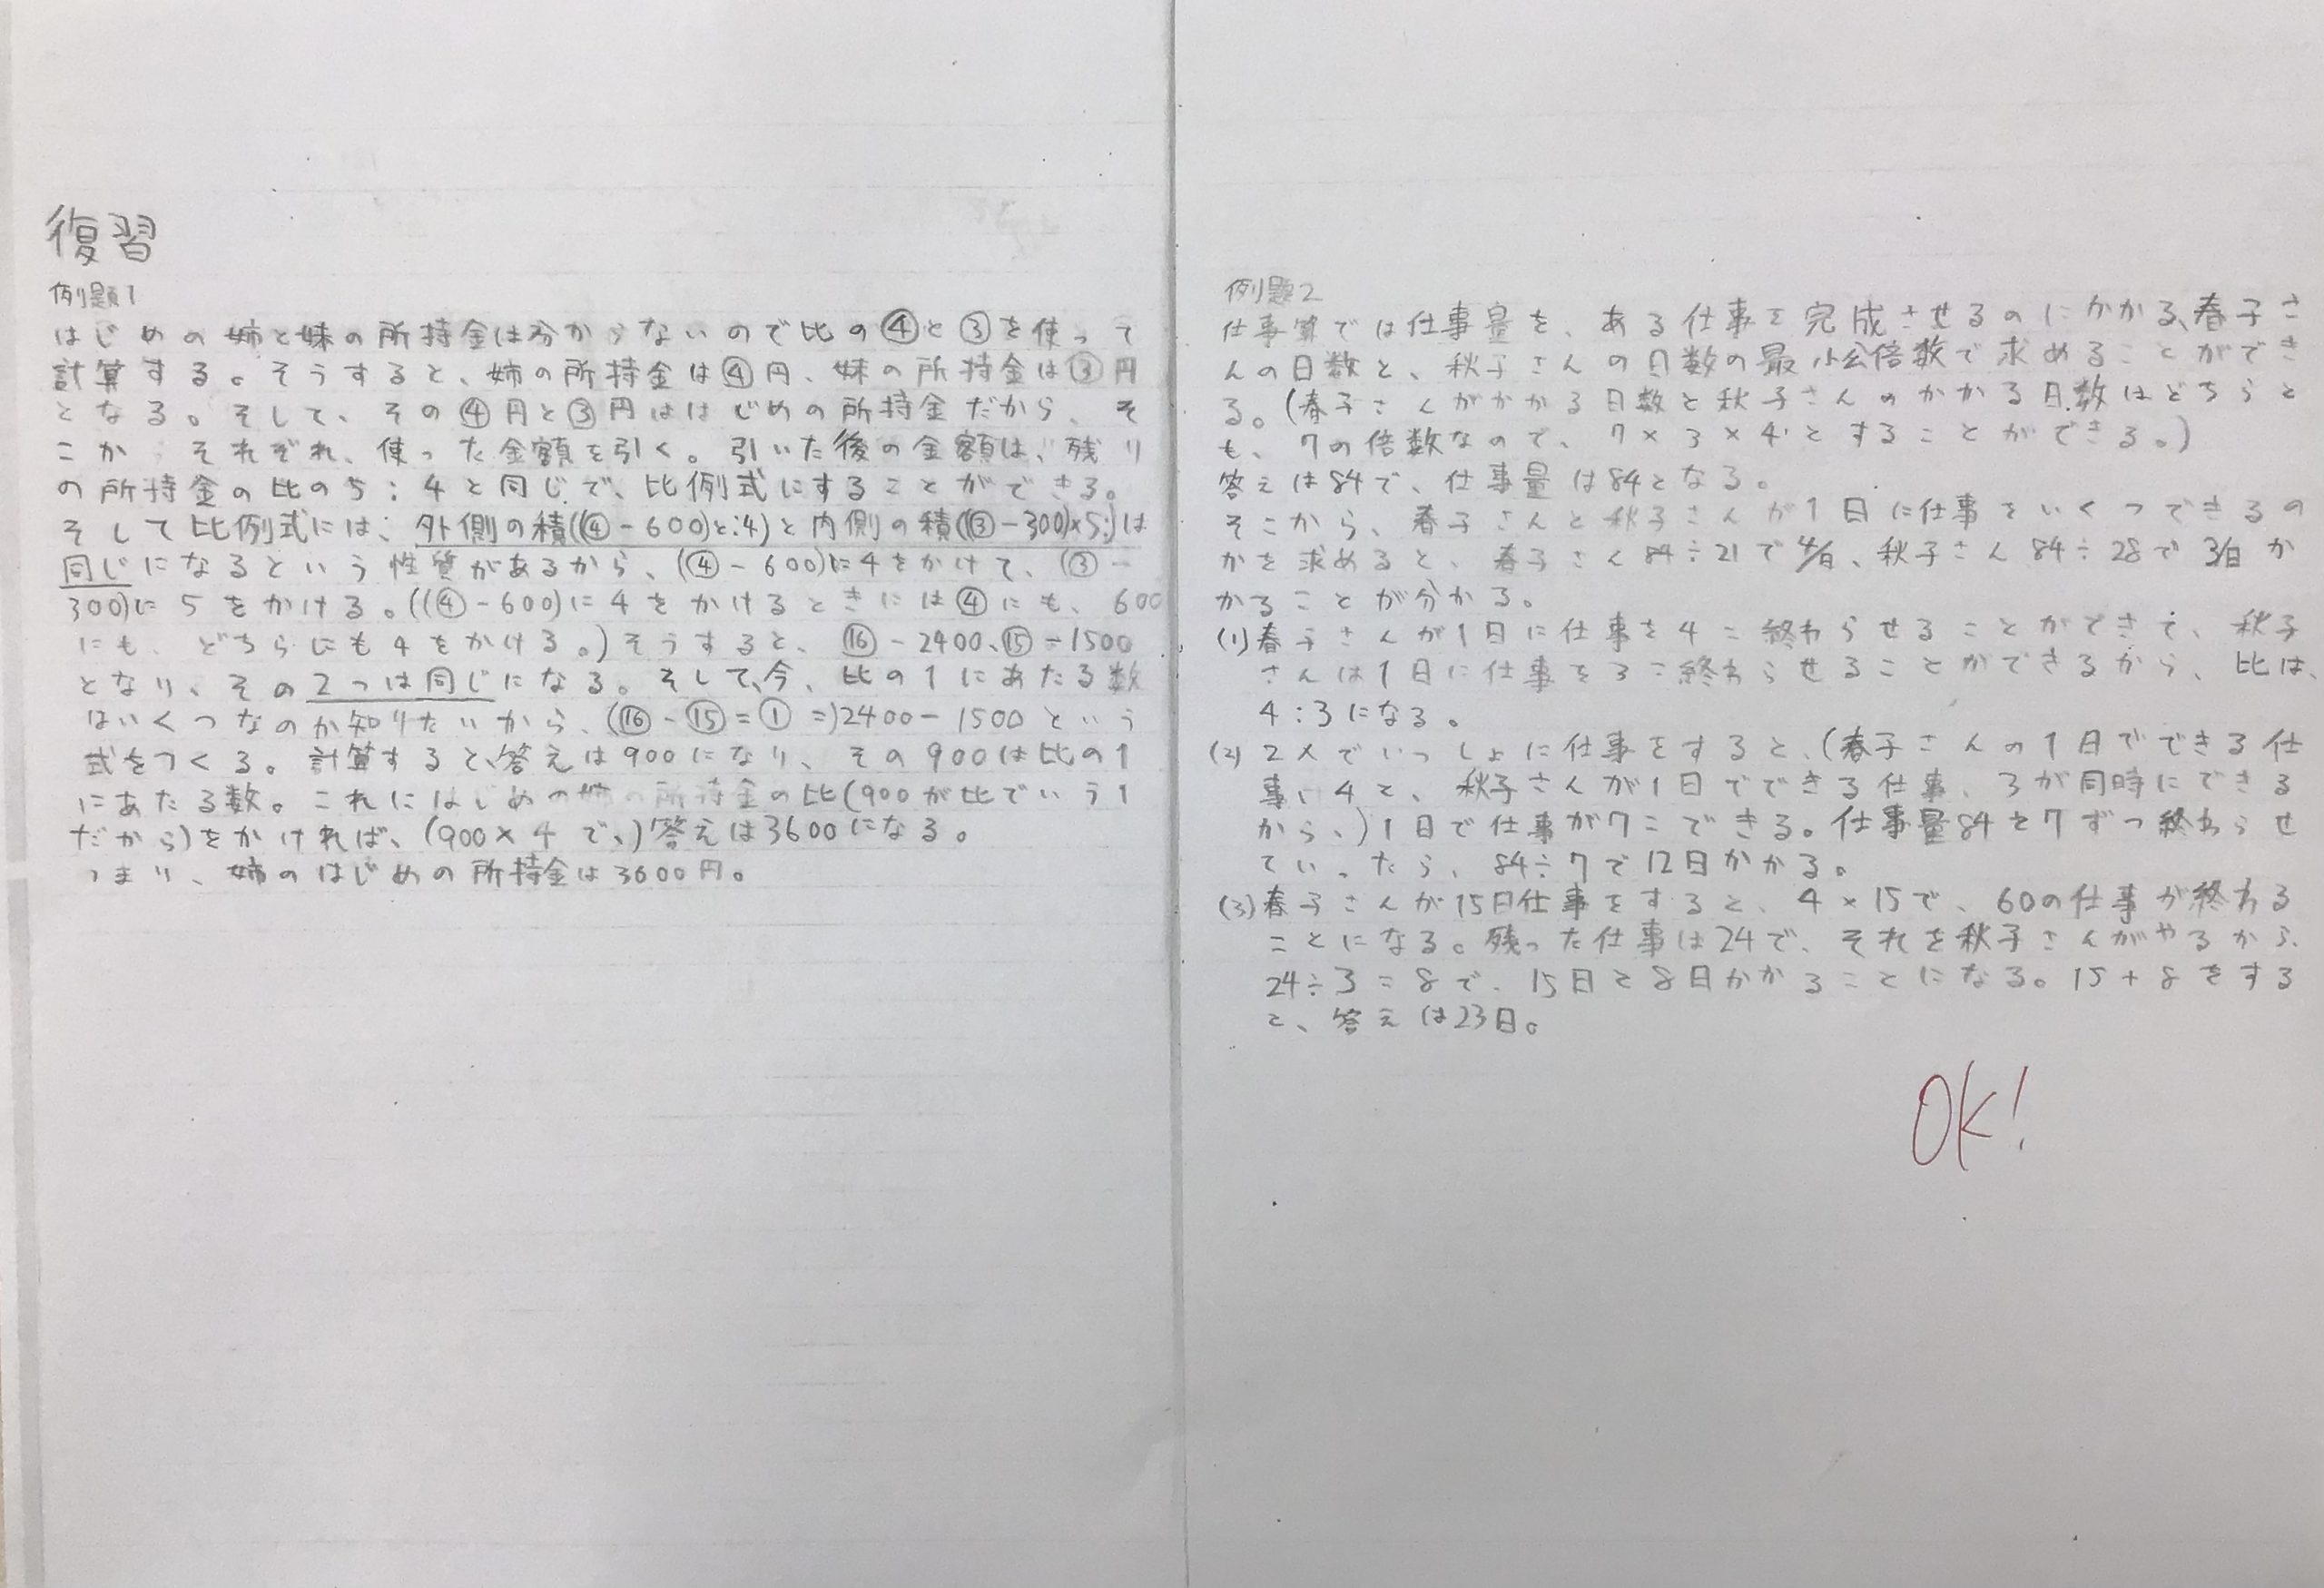 復習
例題1
はじめの姉と妹の所持金は分からないので比の④と③を使って
計算する。そうすると、姉の所持金は④円、妹の所持金は③円
となる。そして、その④円と③円ははじめの所持金だから、そ
こから それぞれ、使った金額を引く。引いた後の金額は、残り
の所持金の比の5:4と同じで、比例式にすることができる。
そして比例式には、外側の積((④-600)と:4)と内側の積((③-300)×5:)は
同じになるという性質があるから、(④-600)に4をかけて、(③-
300)に5をかける。((④-600)に4をかけるときには④にも、600
にも、どちらにも4をかける。)そうすると、⑯-2400、⑮-1500
となり、その2つは同じになる。そして、今、比の1にあたる数
はいくつなのか知りたいから、(⑯-⑮=①⇒)2400-1500という
式をつくる。計算すると、答えは900になり、その900は比の1
にあたる数。これにはじめの姉の所持金の比(900が比でいう1
だから)をかければ、(900×4で、)答えは3600になる。
つまり、姉のはじめの所持金は3600円。
例題2
仕事算では仕事量を、ある仕事を完成させるのにかかる、春子さ
んの日数と、秋子さんの日数の最小公倍数で求めることができ
る。(春子さんがかかる日数と秋子さんのかかる日数はどちらと
も、7の倍数なので、7×3×4とすることができる。)
答えは84で、仕事量は84となる。
そこから、春子さんと秋子さんが1日に仕事をいくつできるの
かを求めると、春子さん84÷21で4/日、秋子さん84÷28で3/日か
かることが分かる。
(1)春子さんが1日に仕事を4こ終わらせることができて、秋子
さんは1日に仕事を3こ終わらせることができるから、比は、
4:3になる。
(2)2人でいっしょに仕事をすると、(春子さんの1日でできる仕
事、4と、秋子さんが1日でできる仕事、3が同時にできる
から、)1日で仕事が7こできる。仕事量84を7ずつ終わらせ
ていったら、84÷7で12日かかる。
(3)春子さんが15日仕事をすると、4×15で、60の仕事が終わる
ことになる。残った仕事は24で、それを秋子さんがやるから、
24÷3=8で、15日と8日かかることになる。15+8をする
と、答えは23日。
OK!